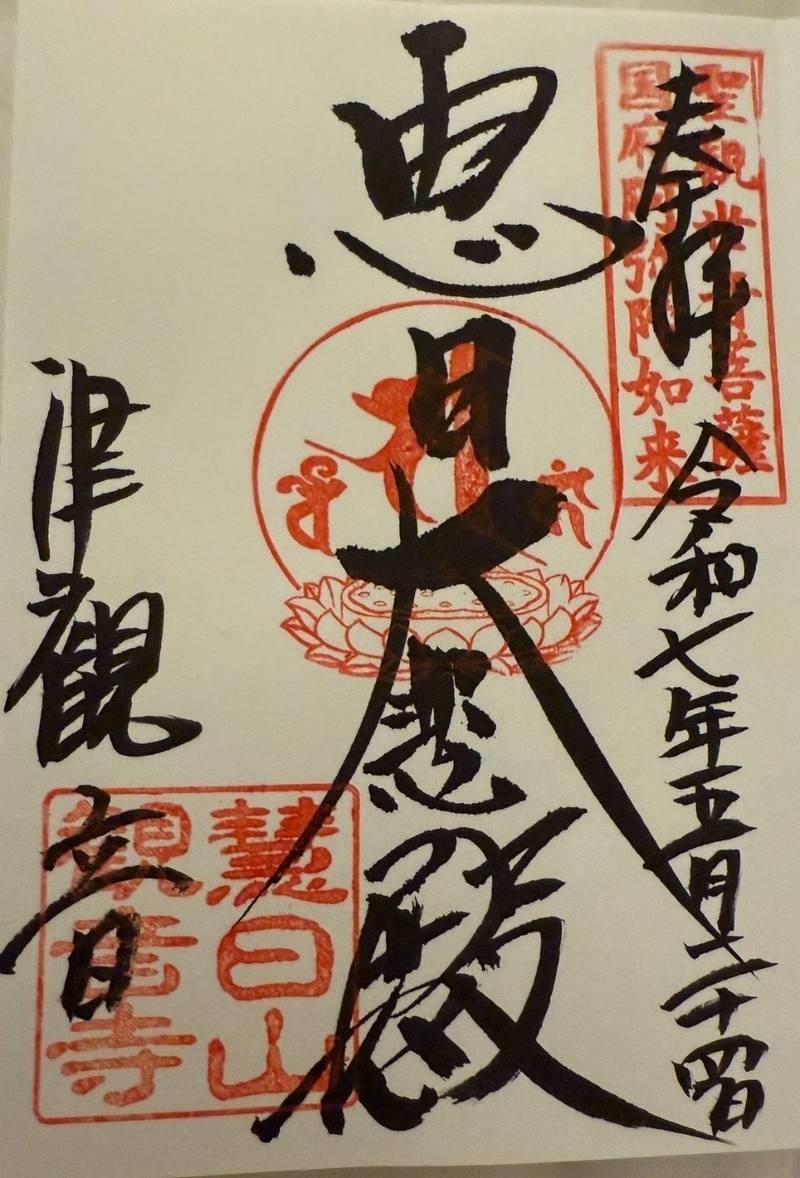 奉拝 令和七年五月二十四日
聖観世音菩薩
国府阿弥陀如来
恵日大悲殿
津観音
慧日山
観音寺